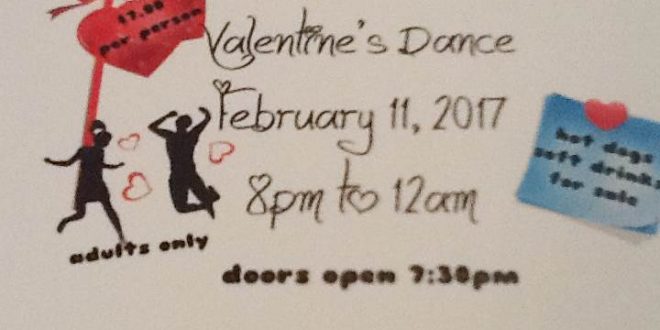 per person
Valentine's Dance
February 11, 2017
8pm to 12am
adults only
doors open 7:30pm
hot dogs
soft drinks
for sale